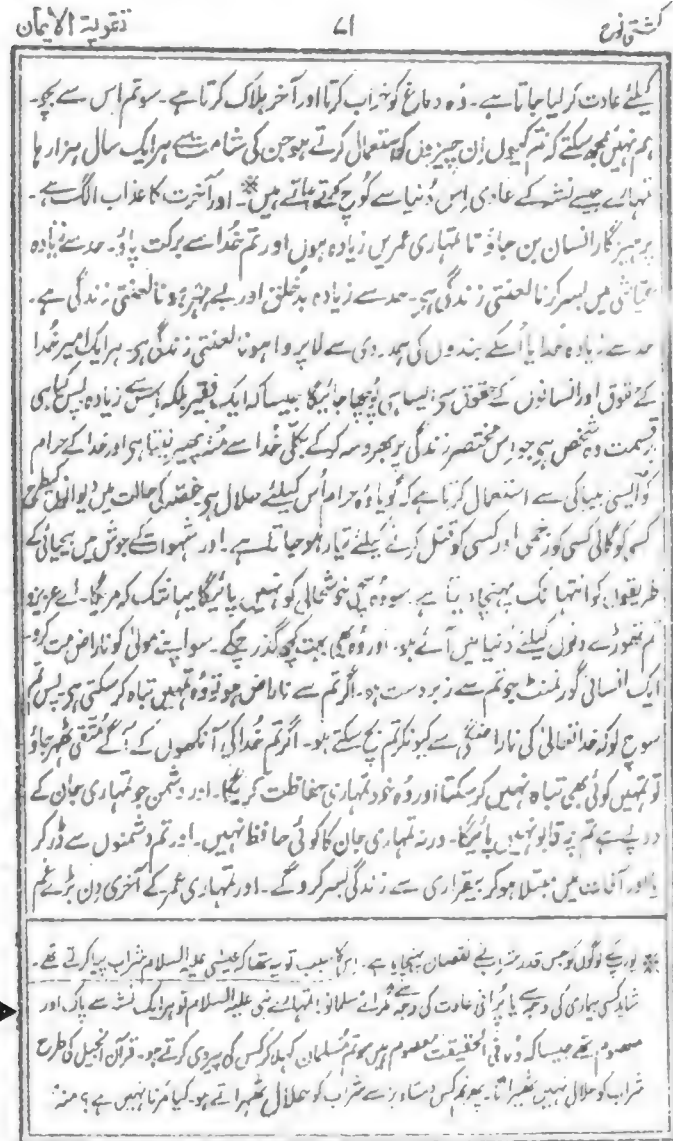 کشتی نوح ۷۱ تقویۃ الایمان
کیلئے عادت کر لیا جاتا ہے۔ وُہ دماغ کو خراب کرتا اور آخر ہلاک کرتا ہے۔ سو تم اس سے بچو۔
ہم نہیں سمجھ سکتے کہ تم کیوں اِن چیزوں کو استعمال کرتے ہو جن کی شامت سے ہر ایک سال ہزار ہا
تمہارے جیسے نشہ کے عادی اِس دُنیا سے کُوچ کرتے جاتے ہیں※۔ اور آخرت کا عذاب الگ ہے۔
پرہیزگار انسان بن جاؤ تا تمہاری عمریں زیادہ ہوں اور تم خُدا سے برکت پاؤ۔ حد سے زیادہ
عیّاشی میں بسر کرنا لعنتی زندگی ہے۔ حد سے زیادہ بدخلق اور بے مہر ہونا لعنتی زندگی ہے۔
حد سے زیادہ خدا یا اُسکے بندوں کی ہمدردی سے لاپروا ہونا لعنتی زندگی ہے۔ ہر ایک امیر خُدا
کے حقوق اور انسانوں کے حقوق سے ایسا ہی پُوچھا جائیگا جیسا کہ ایک فقیر بلکہ اس سے زیادہ پس کیا ہی
بدقسمت وہ شخص ہے جو اِس مختصر زندگی پر بھروسہ کر کے بکلّی خُدا سے مُنہ پھیر لیتا ہے اور خدا کے حرام
کو ایسی بیباکی سے استعمال کرتا ہے کہ گویا وُہ حرام اُس کیلئے حلال ہے غصّہ کی حالت میں دیوانوں کیطرح
کسی کو گالی کسی کو زخمی اور کسی کو قتل کرنے کیلئے تیار ہو جاتا ہے۔ اور شہوات کے جوش میں بیحیائی کے
طریقوں کو انتہا تک پہنچا دیتا ہے سو وہ سچی خوشحالی کو نہیں پائیگا یہانتک کہ مریگا۔ اے عزیزو
تم تھوڑے دنوں کیلئے دُنیا میں آئے ہو۔ اور وُہ بھی بہت کچھ گذر چکے۔ سو اپنے مولیٰ کو ناراض مت کرو
ایک انسانی گورنمنٹ جو تم سے زبردست ہو۔ اگر تم سے ناراض ہو تو وُہ تمہیں تباہ کر سکتی ہے پس تم
سوچ لو کہ خدا تعالیٰ کی ناراضگی سے کیونکر تم بچ سکتے ہو۔ اگر تم خُدا کی آنکھوں کے آگے متّقی ٹھہر جاؤ
تو تمہیں کوئی بھی تباہ نہیں کر سکتا اور وُہ خود تمہاری حفاظت کریگا۔ اور دشمن جو تمہاری جان کے
درپے ہے تم پر قابو نہیں پائیگا۔ ورنہ تمہاری جان کا کوئی حافظ نہیں۔ اور تم دشمنوں سے ڈر کر
یا اور آفات میں مبتلا ہو کر بیقراری سے زندگی بسر کرو گے۔ اور تمہاری عمر کے آخری دِن بڑے غم
※ یورپ کے لوگوں کو جس قدر شراب نے نقصان پہنچایا ہے۔ اِس کا سبب تو یہ تھا کہ عیسٰی علیہ السلام شراب پیا کرتے تھے۔
شاید کسی بیماری کی وجہ سے یا پُرانی عادت کی وجہ سے مگر اے مسلمانو! تمہارے نبی علیہ السلام تو ہر ایک نشہ سے پاک اور
معصوم تھے جیسا کہ وُہ فی الحقیقت معصوم ہیں سو تم مُسلمان کہلا کر کس کی پیروی کرتے ہو۔ قرآن انجیل کی طرح
شراب کو حلال نہیں ٹھہراتا۔ پھر تم کس دستاویز سے شراب کو حلال ٹھہراتے ہو۔ کیا مرنا نہیں ہے؟ منہ